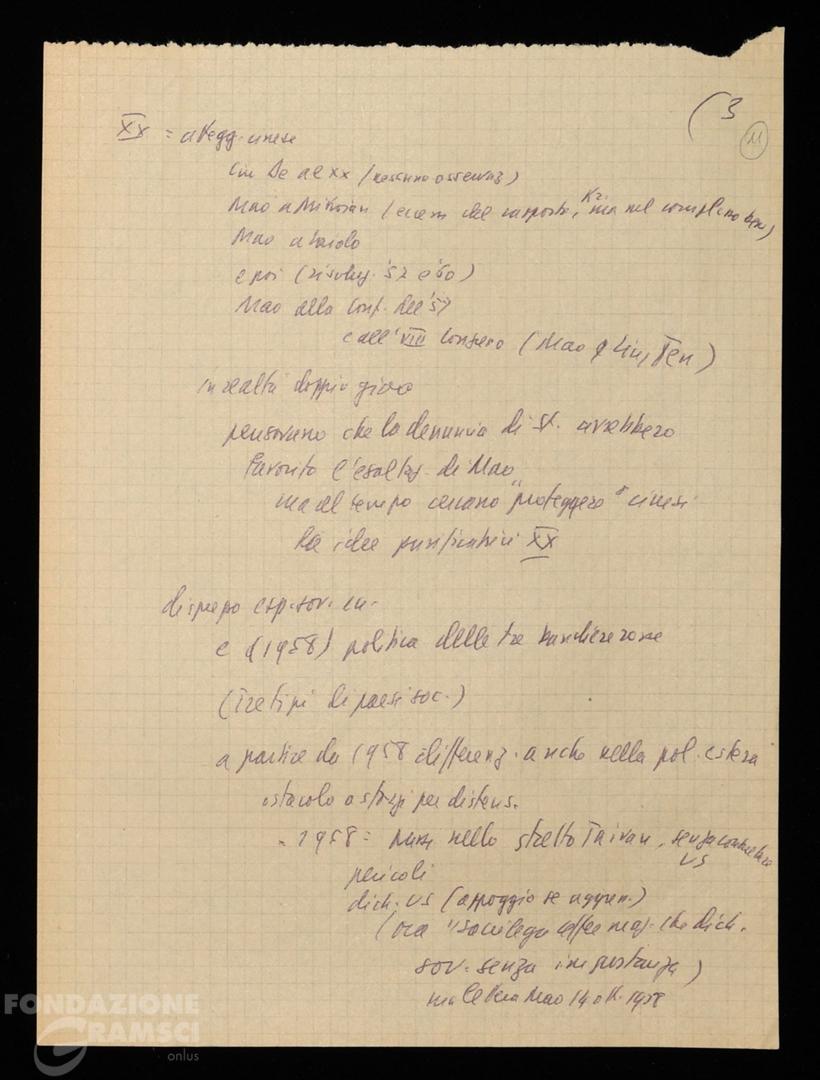 (3
11
XX = attegg. cinese
Ciu De al XX (nessuna osservaz)
Mao a Mikoian (errori del rapporto Kr., ma nel compl. mo bene)
Mao a
e poi (risoluz. '57 e '60)
Mao alla Conf. del '57
e all'VIII Congresso (Mao e Liu, Ten)
in realtà doppio gioco
pensavano che la denuncia di St. avrebbero
favorito l'esaltaz. di Mao
ma al tempo cercano "proteggere" cinesi
da idee purificatrici XX
disprezzo esp. sov. ec.
e (1958) politica delle tre bandiere rosse
(Tre tipi di paesi soc.)
a partire da 1958 differenz. anche nella pol. estera
ostacolo a sforzi per distens.
- 1958 = passi nello stretto Taivan, senza consultare
US
pericoli
dich. US (appoggio se aggres.)
(ora "sacrilega affermaz. che dich.
sov. senza importanza)
ma lettera Mao 14 ott. 1958
FONDAZIONE
GRAMSCI
onlus